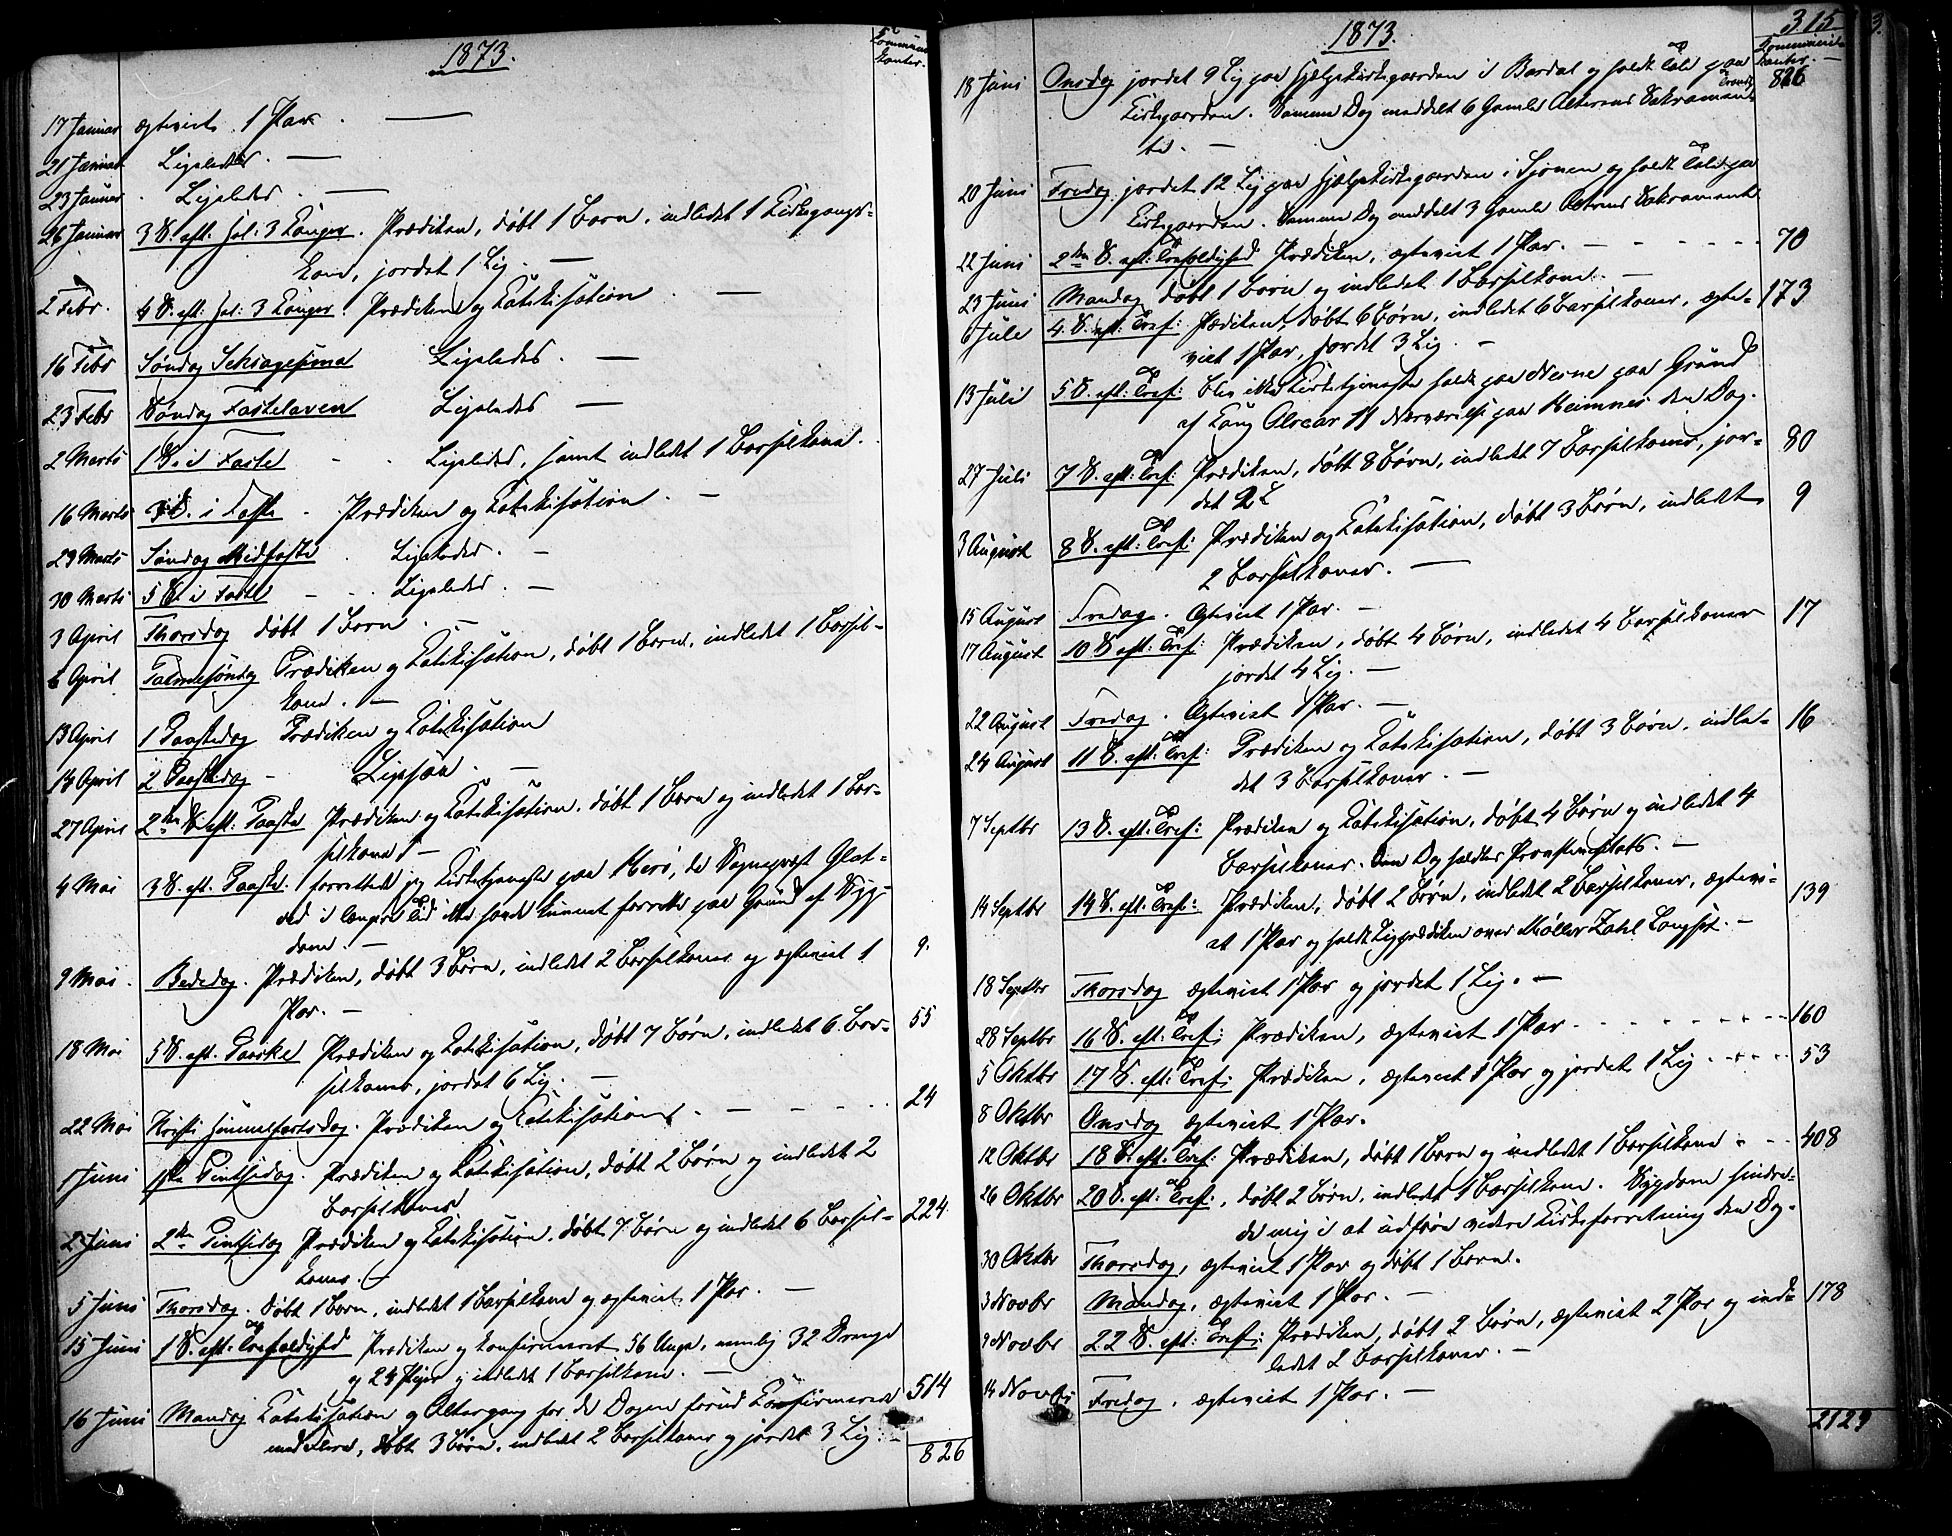 1873.
Communi-
kanter.
17 Januar ægteviet 1 Par. —
21 Januar Ligeledes. —
23 Januar. Ligeledes. —
26 Januar 3 S. eft. Hel: 3 Konger. Prædiken, døbt 1 Barn, indledet 1 Kirkegangs-
kone, jordet 1 Lig. —
2 Febr. 4 S. eft. Hel: 3 Konger. Prædiken og Katekisation. —
16 Febr Søndag Seksagesima Ligeledes. —
23 Febr Søndag Fastelaven Ligeledes —
2 Marts 1 S. i Faste - - Ligeledes, samt indledet 1 Barselkone.
16 Marts 3 S. i Faste. Prædiken og Katekisation. —
23 Marts Søndag Midfaste. Ligeledes. —
30 Marts 5 S. i Faste - - Ligeledes. —
3 April Thorsdag døbt 1 Barn. —
6 April Palmesøndag Prædiken og Katekisation, døbt 1 Barn, indledet 1 Barsel-
kone. —
13 April 1 Paaskedag Prædiken og Katekisation
14 April 2 Paaskedag - Ligesaa. —
27 April 2den S. eft: Paaske Prædiken og Katekisation, døbt 1 Barn og indledet 1 Bar-
selkone. —
4 Mai 3 S. eft. Paaske: forrettede jeg Kirketjeneste paa Herø, da Sognepræst Glat-
ved i længere Tid ikke havde kunnet forrette paa Grund af Syg-
dom. —
9 Mai. Bededag. Prædiken, døbt 3 Børn, indledet 2 Barselkoner og ægteviet 1 9.
Par. —
18 Mai 5 S. eft. Paaske Prædiken og Katekisation, døbt 7 Børn, indledet 6 Bar- 55
selkoner, jordet 6 Lig. —
22 Mai Kristi Himmelfartsdag. Prædiken og Katekisation. — - - - - 24
1 Juni 1ste Pintsedag. Prædiken og Katekisation, døbt 2 Børn og indledet 2
Barselkoner
2 Juni 2den Pintsedag Prædiken og Katekisation, døbt 7 Børn og indledet 6 Barsel- 224.
koner. —
5 Juni Thorsdag. døbt 1 Barn, indledet 1 Barselkone og ægteviet 1 Par. —
15 Juni 1 S. eft. Trefoldighed Prædiken og konfirmeret 56 Unge, nemlig 32 Drenge
og 24 Piger og indledet 1 Barselkone. — 514
16 Juni Mandag Katekisation og Altergang for de Dagen forud Konfirmerede
med Flere, døbt 3 Børn, indledet 2 Barselkoner og jordet 3 Lig. —
826
1873.
315
Communi-
kanter.
18 Juni Onsdag jordet 9 Lig paa Hjælpekirkegaarden i Bardal og holdt Tale paa 826
Kirkegaarden. Samme Dag meddelt 6 Gamle Alterens Sakramen-
te. —
20 Juni Fredag jordet 12 Lig paa Hjælpekirkegaarden i Sjonen og holdt Tale paa
Kirkegaarden. Samme Dag meddelt 3 Gamle Alterens Sakramente
22 Juni 2den S. eft: Trefoldighed Prædiken, ægteviet 1 Par. — - - - - - 70
23 Juni Mandag døbt 1 Barn og indledet 1 Barselkone. —
6 Jule 4 S. eft: Tref: Prædiken, døbt 6 Børn, indledet 6 Barselkoner, ægte- 173
viet 1 Par, jordet 3 Lig. —
13 Juli 5 S. eft: Tref: blev ikke Kirketjeneste holdt paa Nesne paa Grund
af Kong Oscar II Nærværelse paa Hemnes den Dag.
27 Juli 7 S. eft: Tref: Prædiken, døbt 8 Børn, indledet 7 Barselkoner, jor- 80
det 2 L
3 August 8 S. eft: Tref: Prædiken og Katekisation, døbt 3 Børn, indledet 9
2 Barselkoner. —
15 August Fredag. Ægteviet 1 Par. —
17 August 10 S. eft: Tref: Prædiken, døbt 4 Børn, indledet 4 Barselkoner 17
jordet 4 Lig. —
22 August Fredag. Ægteviet 1 Par. —
24 August 11 S. eft: Tref: Prædiken og Katekisation, døbt 3 Børn, indle- 16
det 3 Barselkoner. —
7 Septbr 13 S. eft: Tref: Prædiken og Katekisation, døbt 4 Børn og indledet 4
Barselkoner. Den Dag holdtes Provstevisitats. —
14 Septbr 14 S. eft: Tref: Prædiken, døbt 2 Børn, indledet 2 Barselkoner, ægtevi- 139
et 1 Par og holdt Ligprædiken over Møller Zahl Langset. —
18 Septbr Thorsdag ægteviet 1 Par og jordet 1 Lig. —
28 Septbr 16 S. eft: Tref: Prædiken, ægteviet 1 Par - - - - - - - 160
5 Oktbr 17 S. eft: Tref: Prædiken, ægteviet 1 Par og jordet 1 Lig - - - - 53
8 Oktbr Onsdag ægteviet 1 Par.
12 Oktbr 18 S. eft: Tref: Prædiken, døbt 1 Barn og indledet 1 Barselkone - - - 408
26 Oktbr 20 S. eft: Tref:, døbt 2 Børn, indledet 1 Barselkone. Sygdom hindre-
de mig i at udføre videre Kirkeforretning den Dag.
30 Oktbr Thorsdag, ægteviet 1 Par og døbt 1 Barn.
3 Novbr Mandag, ægteviet 1 Par. —
9 Novbr 22 S. eft: Tref: Prædiken, døbt 2 Børn, ægteviet 2 Par og ind- 178
ledet 2 Barselkoner. —
14 Novbr Fredag, ægteviet 1 Par. —
2129